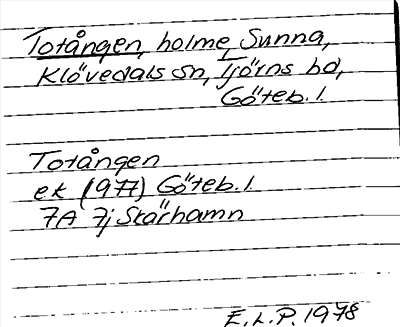 Totången, holme, Sunna,
Klövedals sn, Tjörns hd,
Göteb. l.
Totången
ek (1977) Göteb. l.
7A 7j Skärhamn
E.L.P. 1978